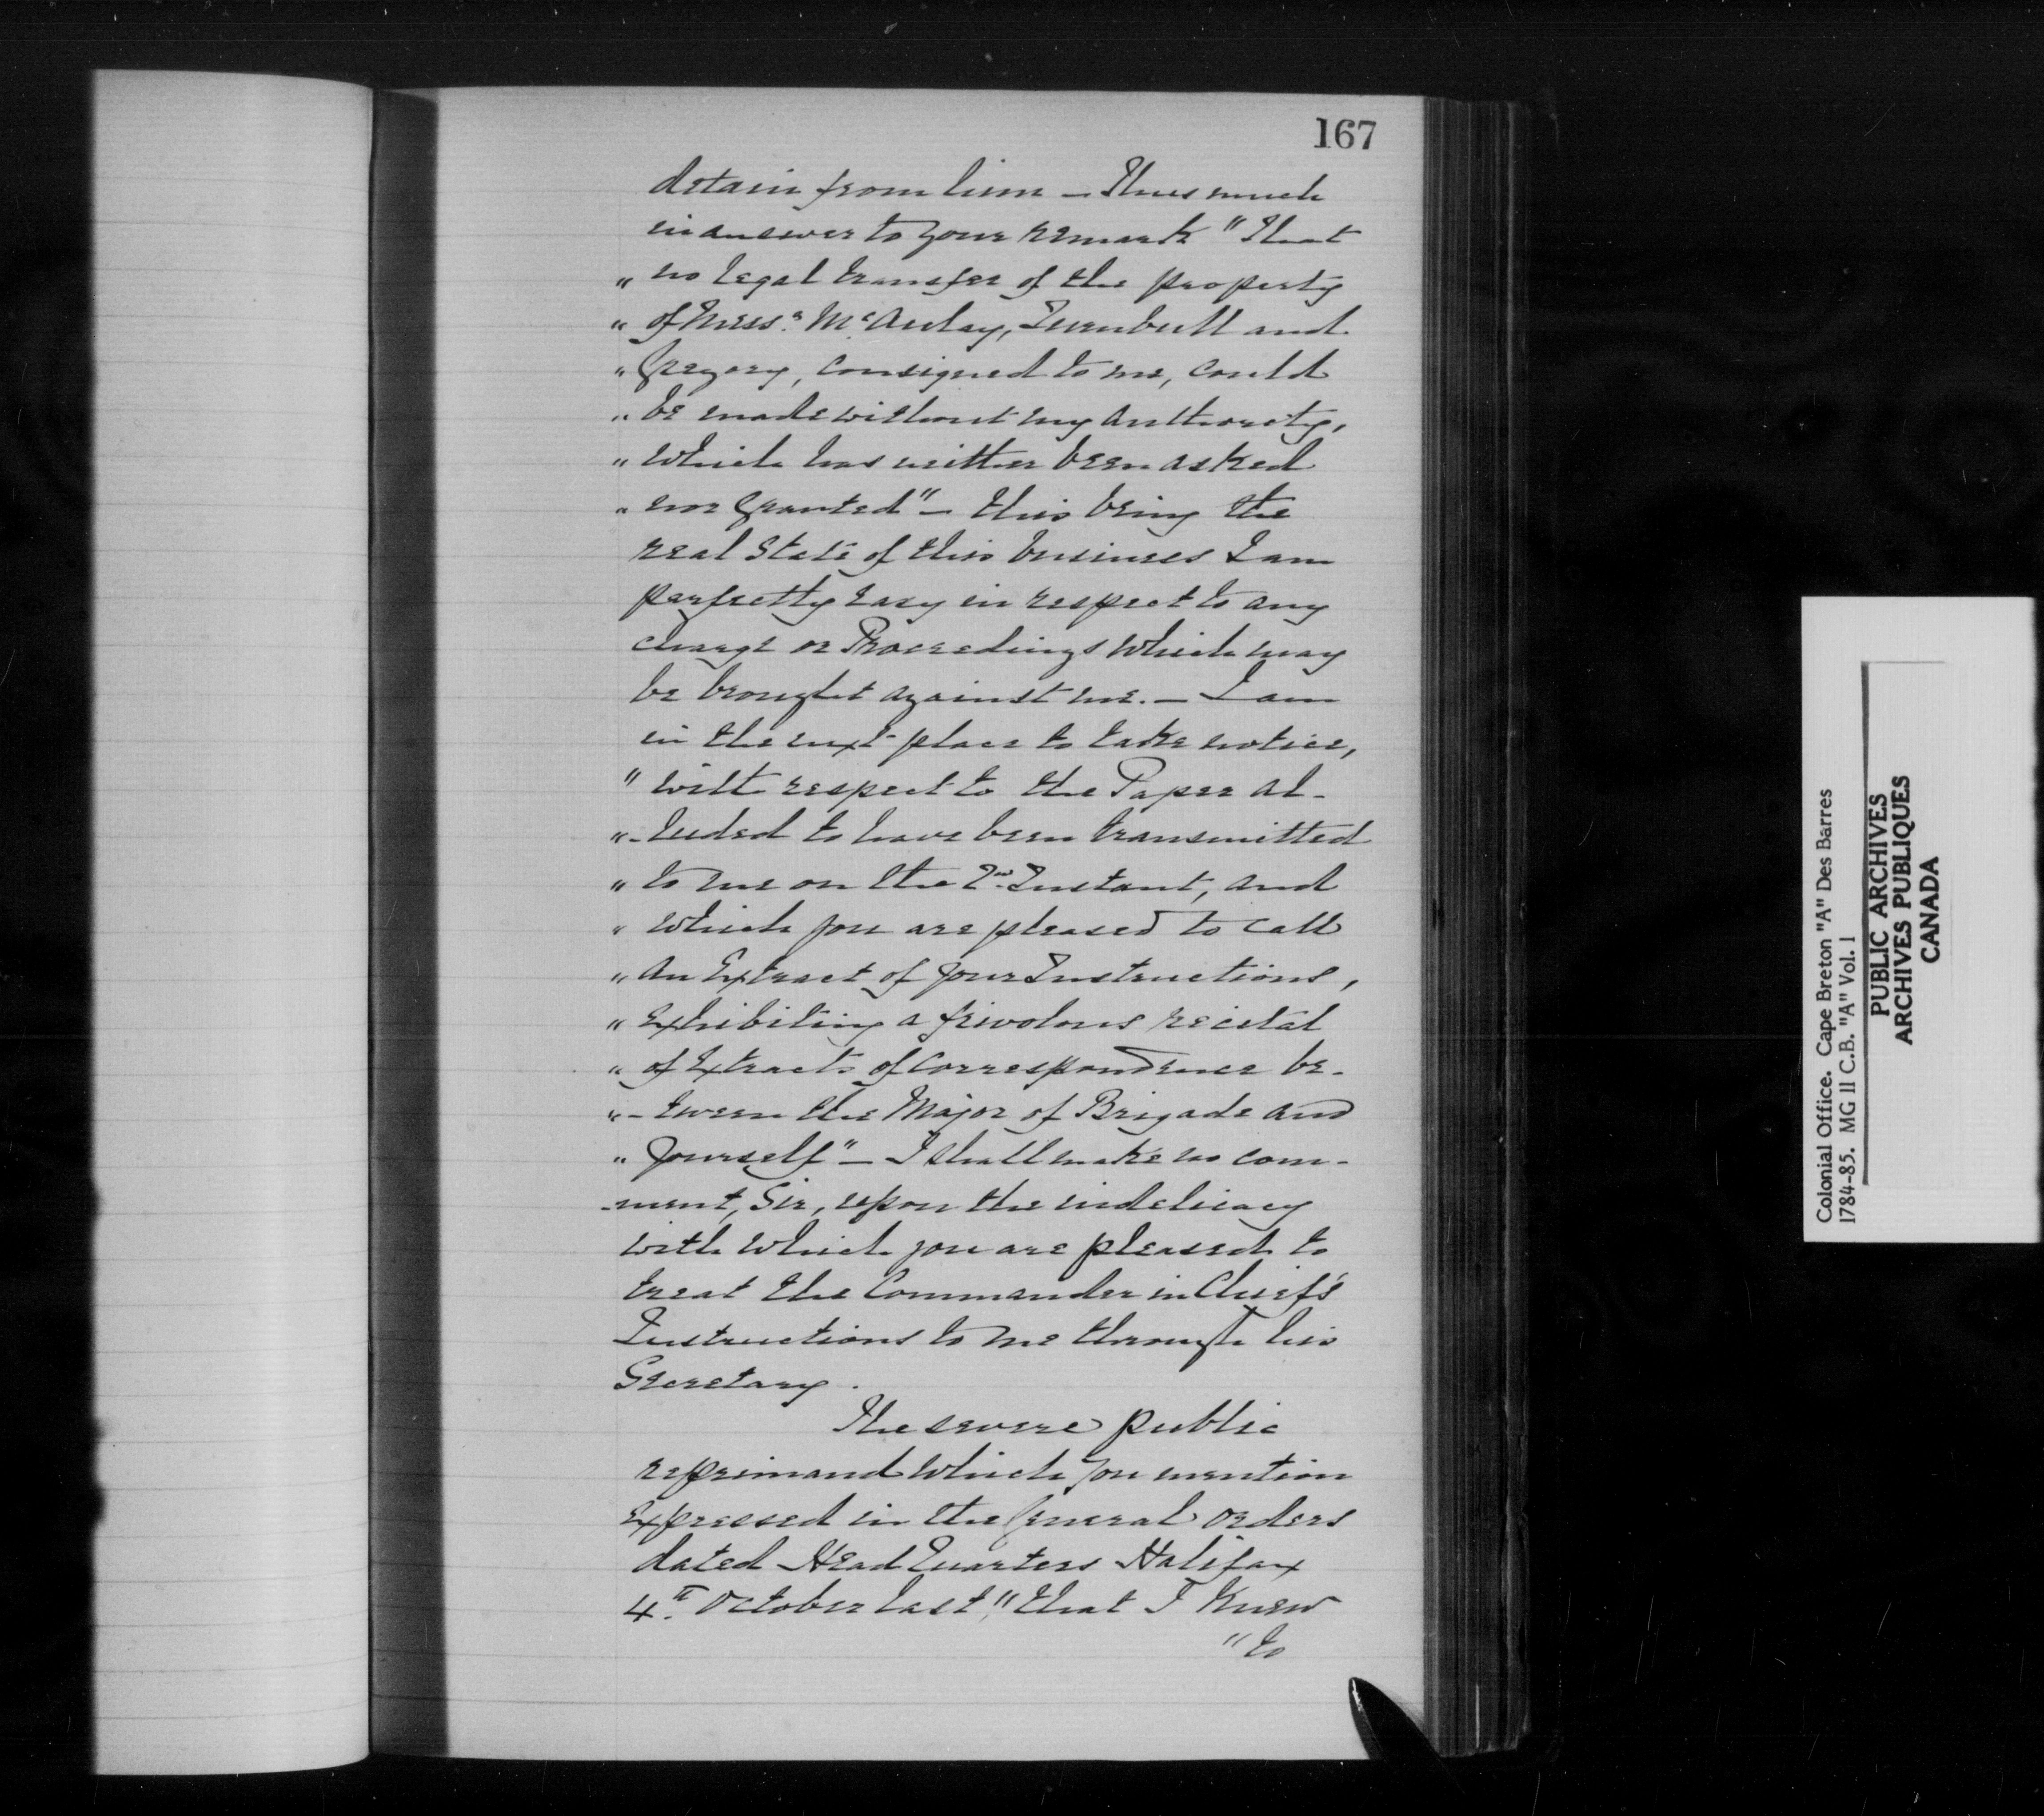 167
detain from him – Thus much
in answer to your remark "That
" no legal transfer of the property
" of Mess.s McAulay, Turnbull and
" Gregory, consigned to me, could
" be made without my authority,
" which has neither been asked
" nor granted" – this being the
real State of this business I am
perfectly easy in respect to any
charge or Proceedings which may
be brought against me. – I am
in the next place to take notice,
" with respect to the Paper al-
"-luded to have been transmitted
" to me on the 2nd Instant, and
" which you are pleased to call
" an Extract of your Instructions,
" exhibiting a frivolous recital
" of Extracts of correspondence be-
"-tween the Major of Brigade and
" yourself" – I shall make no com-
-ment, Sir, upon the indelicacy
with which you are pleased to
treat the Commander in Chief's
Instructions to me through his
Secretary.
The severe public
reprimand which you mention
expressed in the General orders
dated Head Quarters Halifax
4th October last, "that I knew
"to
Colonial Office. Cape Breton "A" Des Barres
1784-85. MG 11 C.B. "A" Vol. 1
PUBLIC ARCHIVES
ARCHIVES PUBLIQUES
CANADA